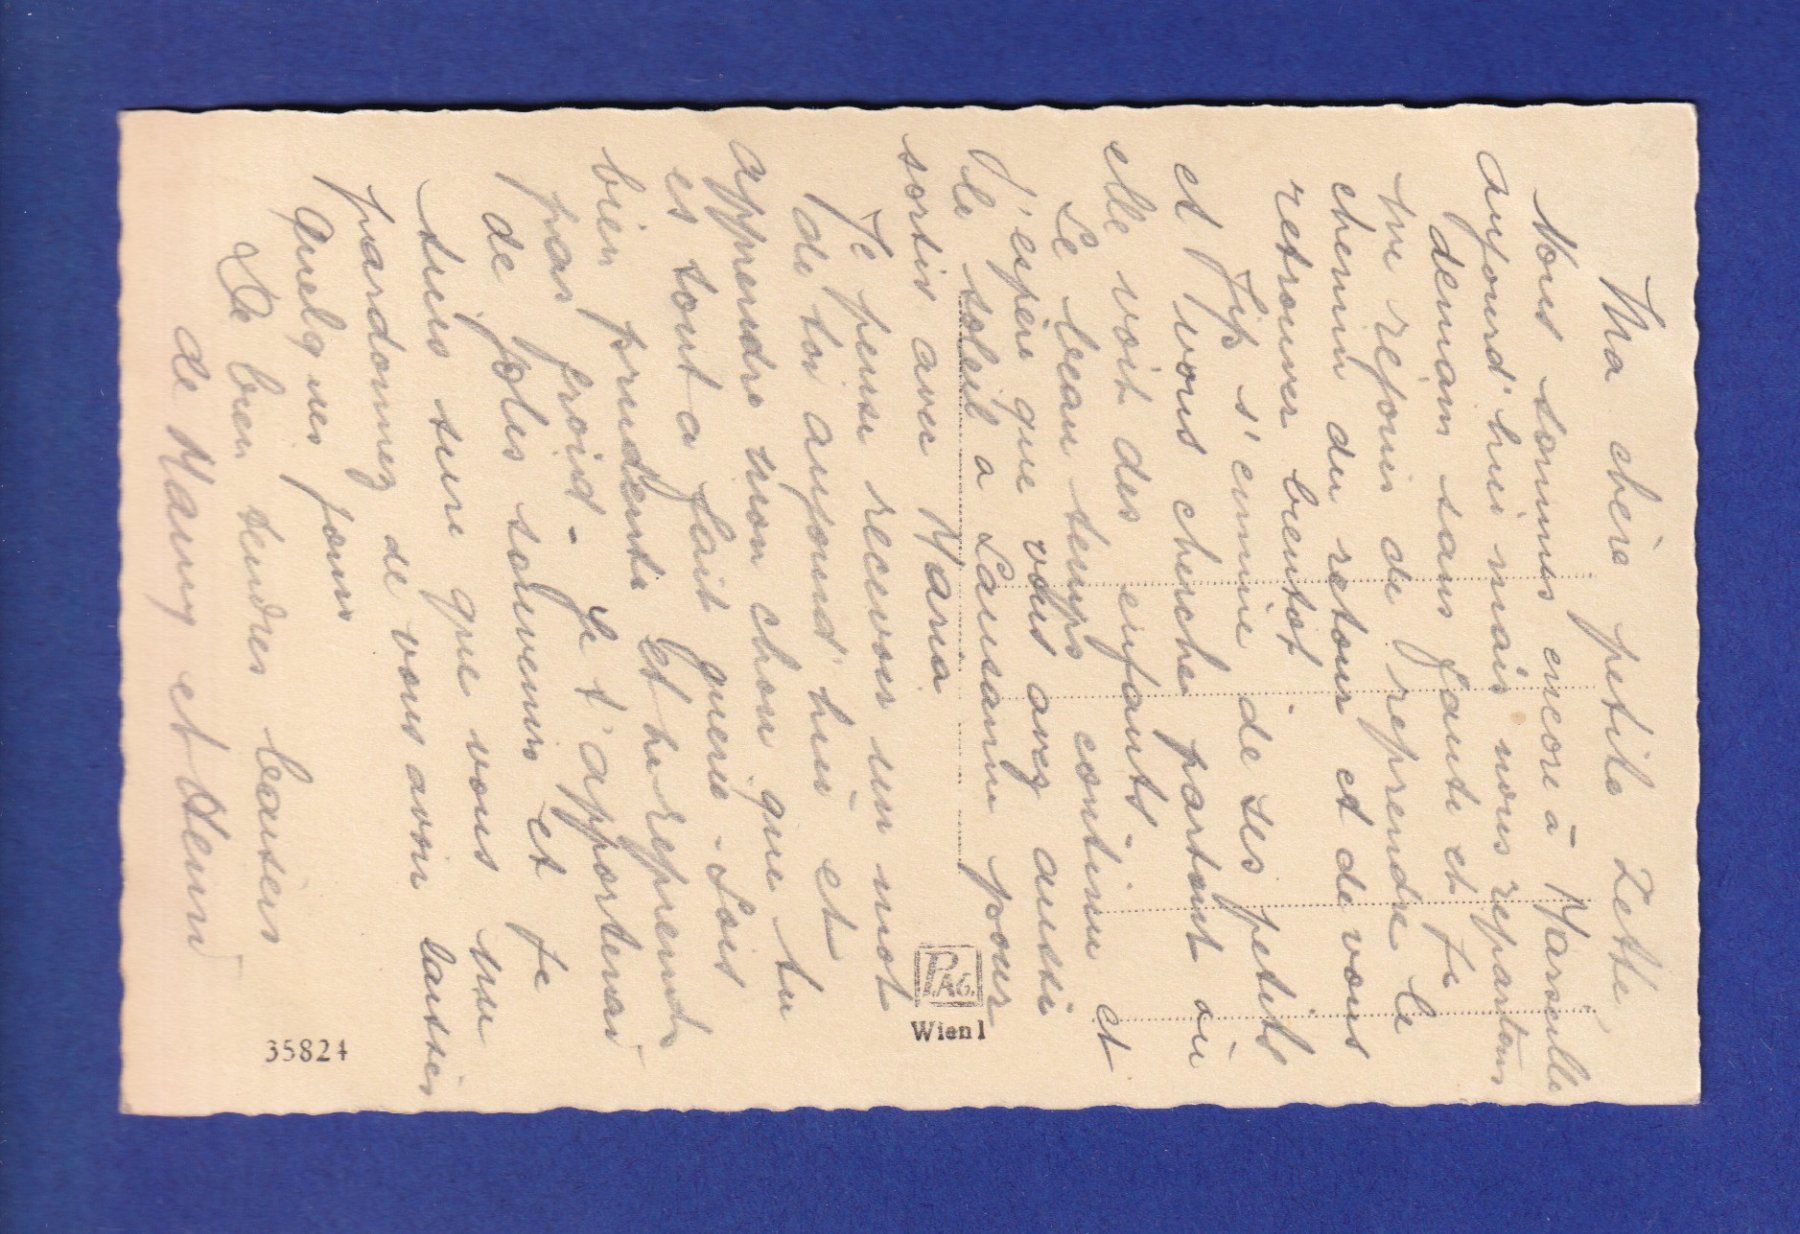 Ma chère petite Zette
Nous sommes encore à Marseille
aujourd'hui mais nous repartons
demain sans faute et je
me rejouis de reprendre le
chemin du retour et de vous
retrouver bientôt
Jip s'ennuie de ses petits
et vous cherche partout où
elle voit des enfants.
Le beau temps continu et
j'espère que vous avez aussi
le soleil a Lausanne pour
sortir avec Maria
Je pense recevoir un mot
de toi aujourd'hui et
apprendre mon chou que tu
es tout a fait guerie - Sois
bien prudente et ne reprends
pas froid - Je t'apporterai
de jolis souvenirs et je
suis sure que vous me
pardonnez de vous avoir laissés
quelques jours
De bien tendres baisers
de Mamy et
PAG.
Wien 1
35824